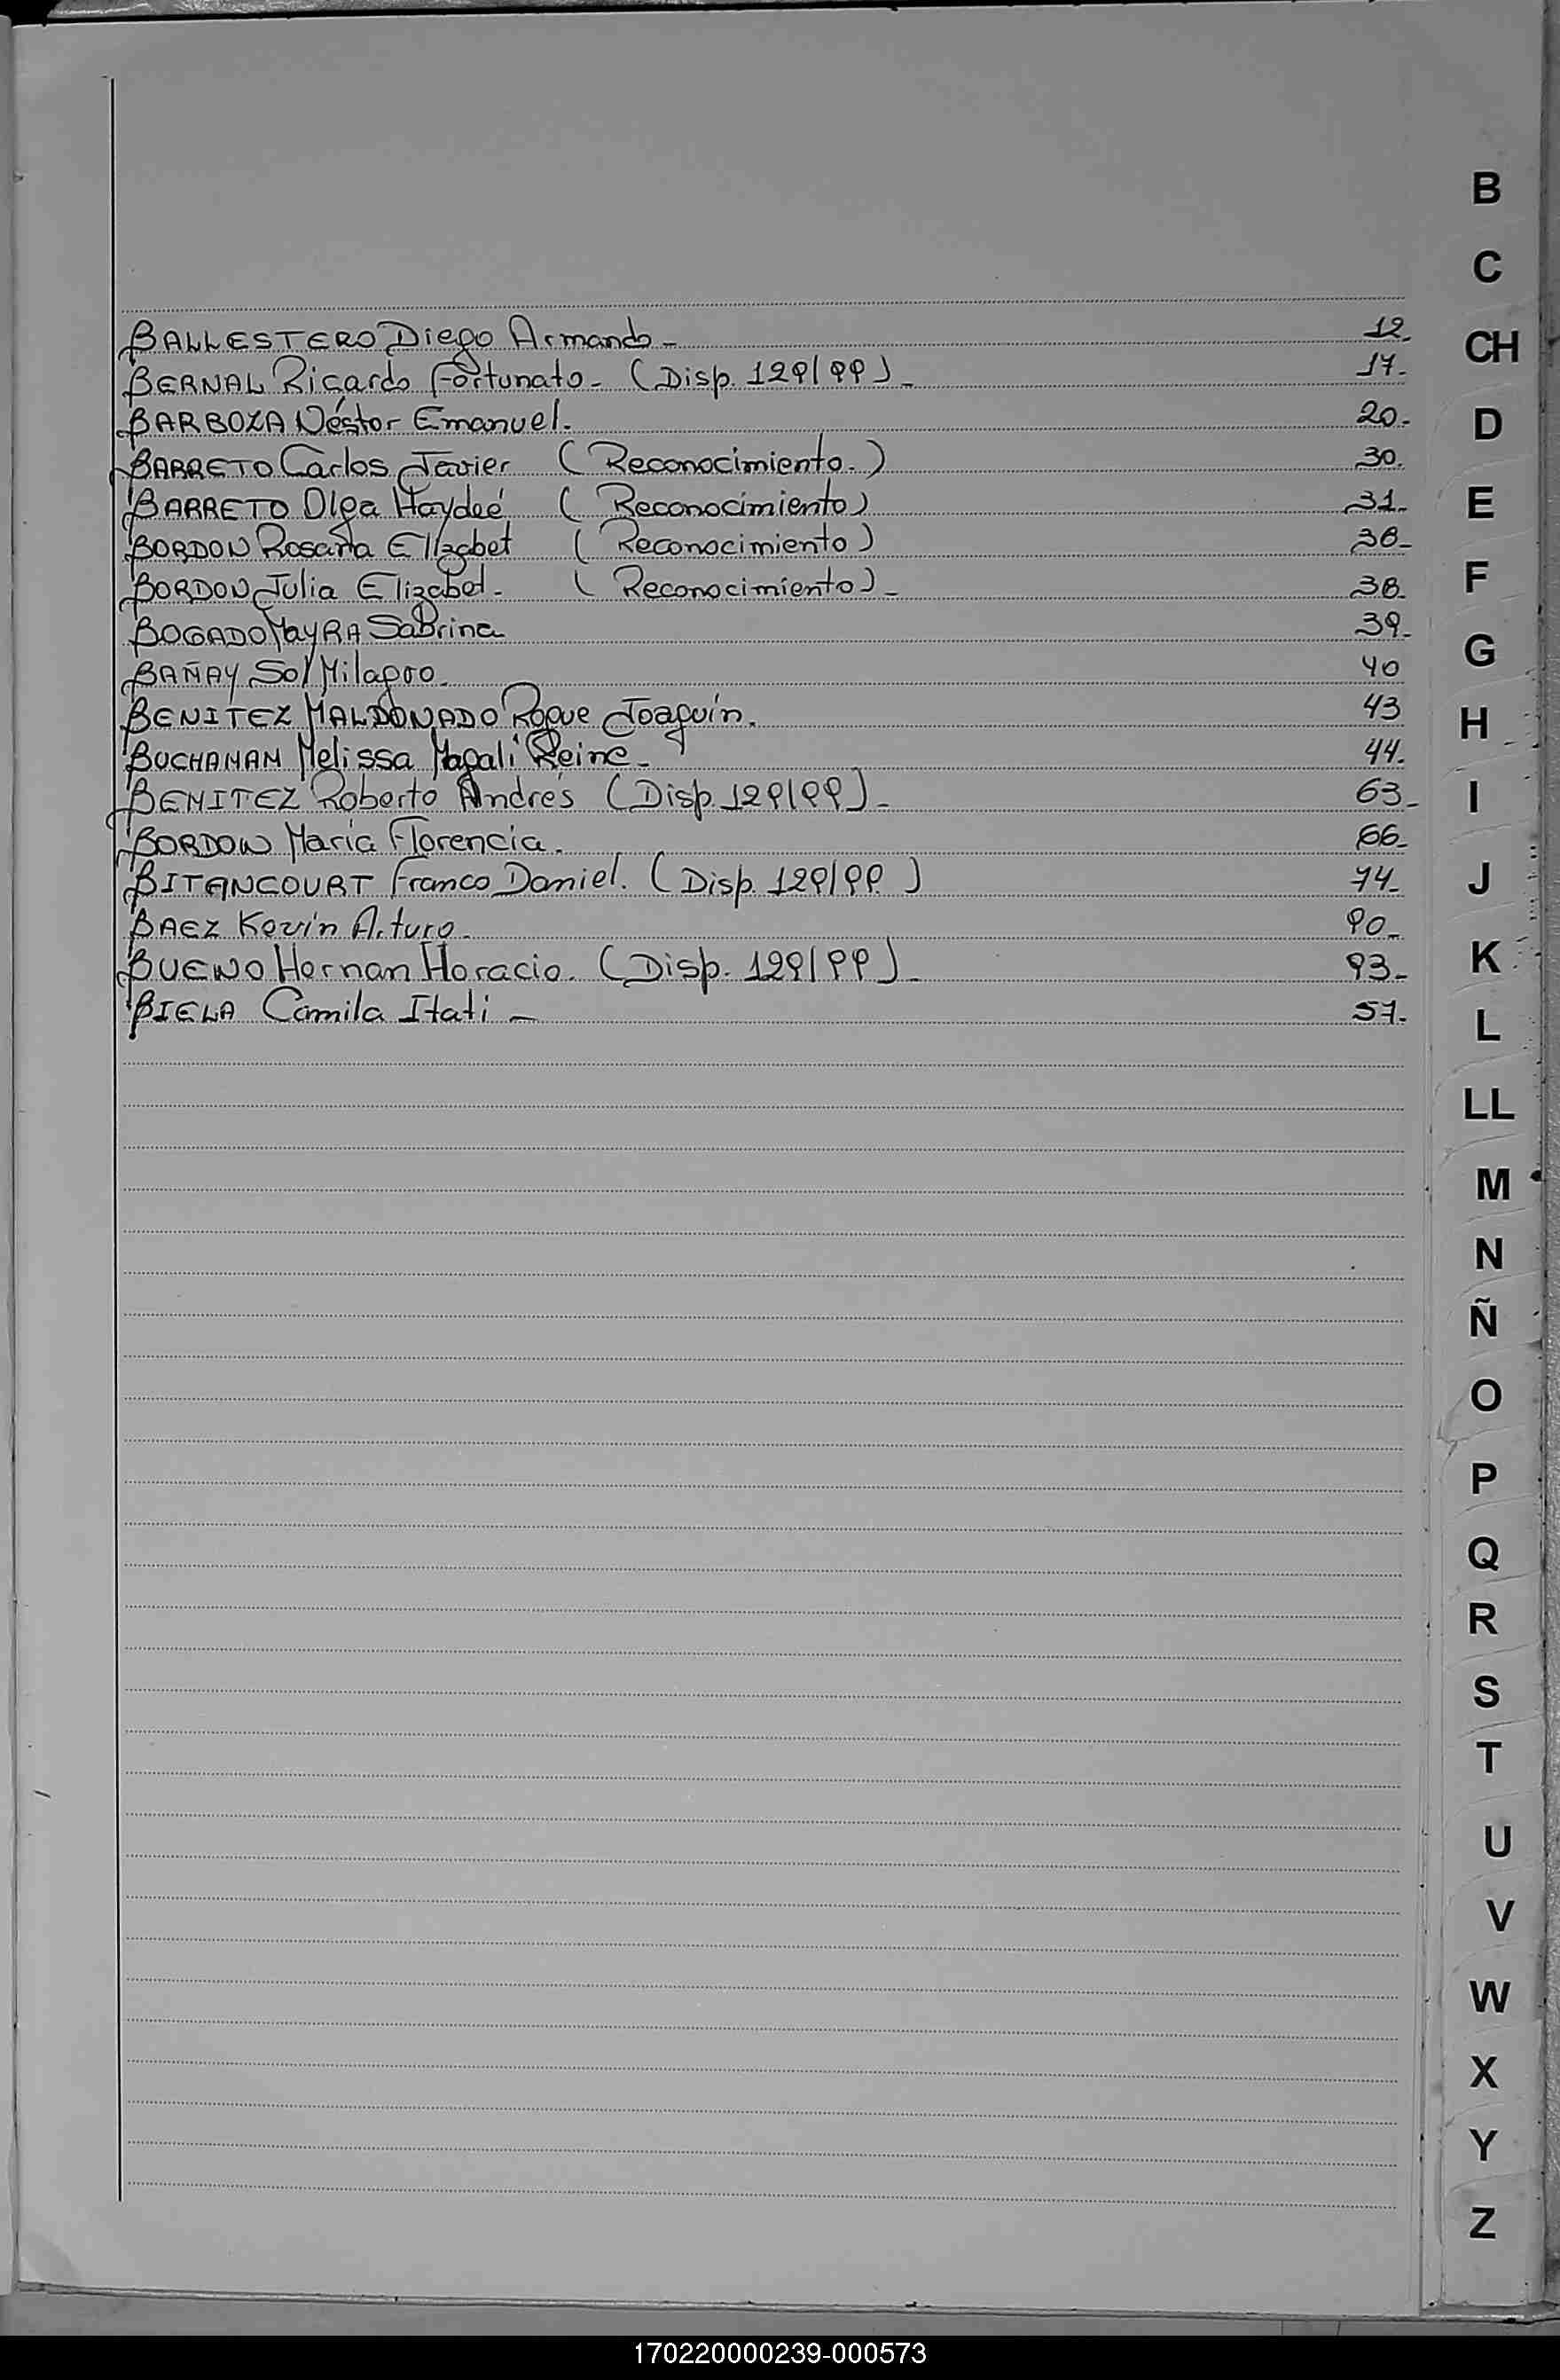 BALLESTERO Diego Armando - 12.
BERNAL Ricardo Fortunato - (Disp. 129/99) - 17.
BARBOZA Néstor Emanuel. 20.
BARRETO Carlos Javier (Reconocimiento.) 30.
BARRETO Olga Haydeé (Reconocimiento) 31.
BORDON Rosana Elizabet (Reconocimiento) 36-
BORDON Julia Elizabet - (Reconocimiento) - 38.
BOGADO MayRA SaBrina 39.
BAÑAY Sol Milagro. 40
BENITEZ MALDONADO Roque Joaquín. 43
BUCHANAN Melissa Magalí Reine - 44.
BENITEZ Roberto Andrés (Disp. 129/99) - 63-
BORDON María Florencia. 66-
BITANCOURT Franco Daniel. (Disp. 129/99) 74-
BAEZ Kevin Arturo - 90-
BUENO Hernan Horacio. (Disp. 129/99) - 93-
BIELA Camila Itati - 57.
B
C
CH
D
E
F
G
H
I
J
K
L
LL
M
N
Ñ
O
P
Q
R
S
T
U
V
W
X
Y
Z
170220000239-000573